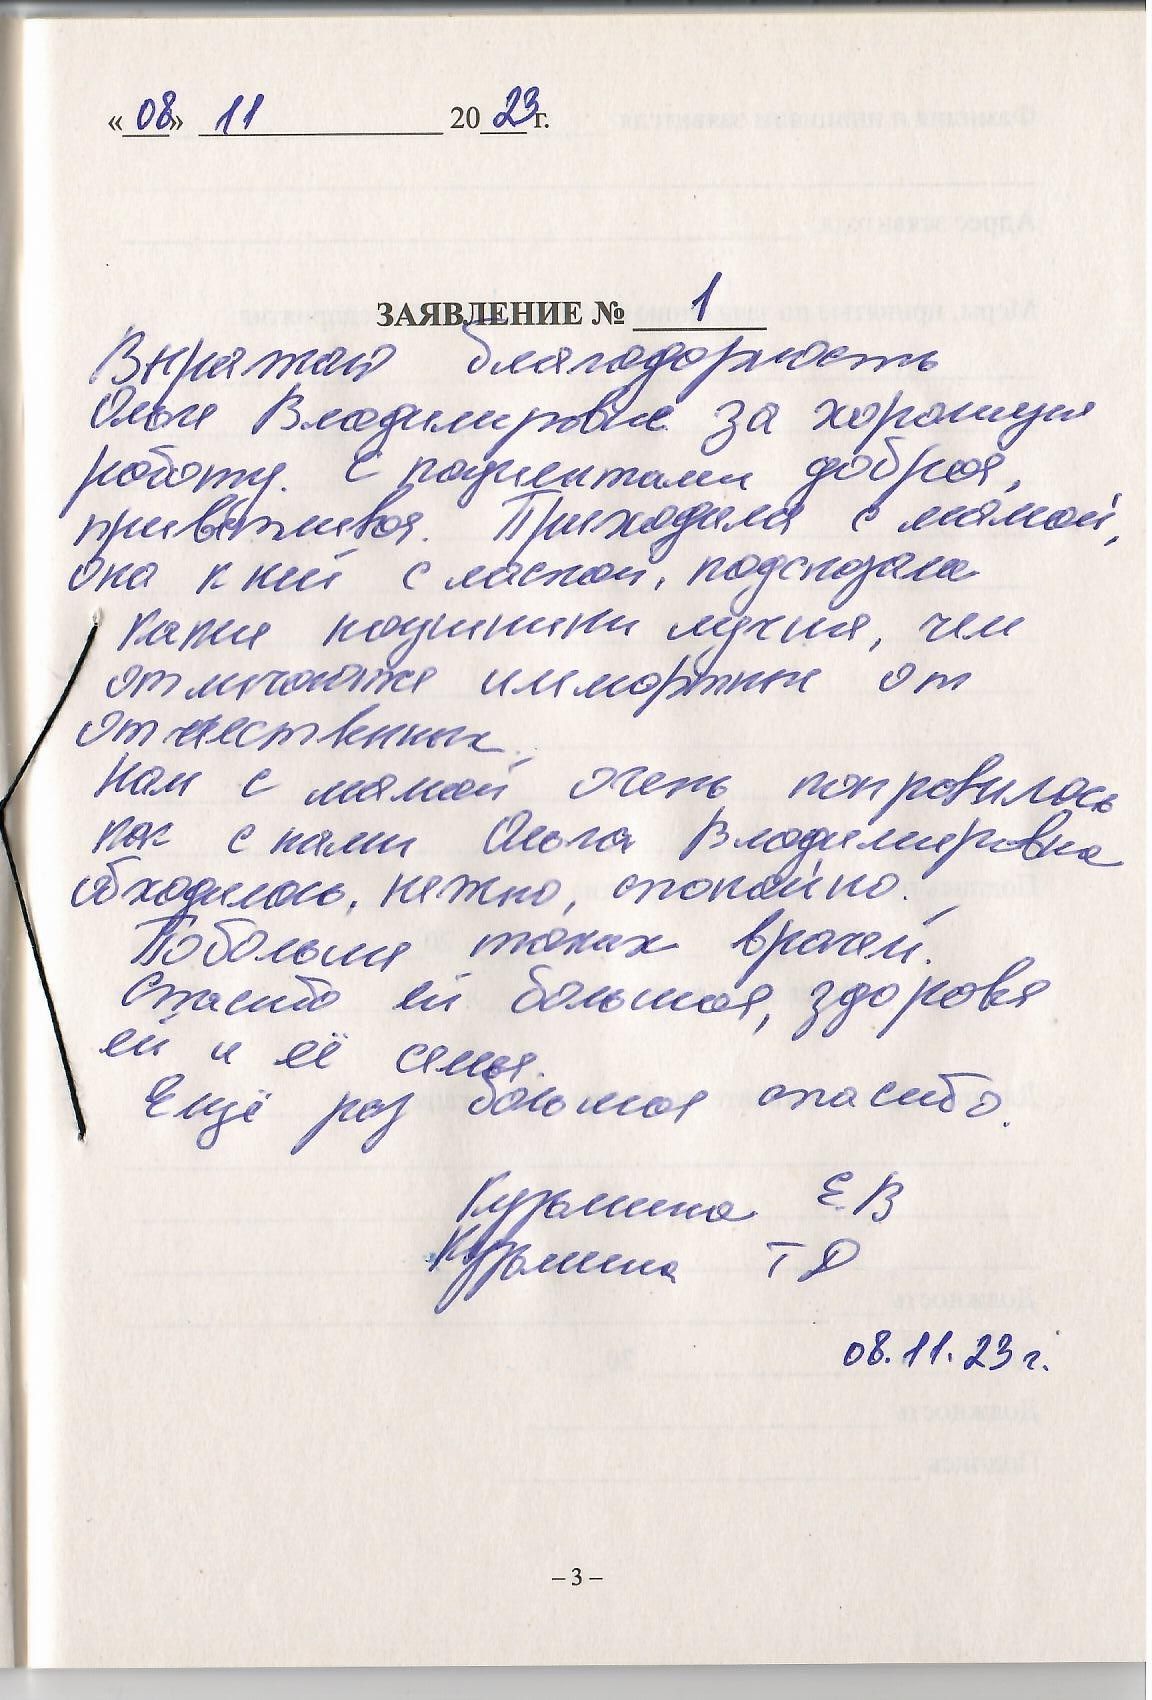 «08» 11 2023 г.
ЗАЯВЛЕНИЕ № 1
Выражаю благодарность
Ольге Владимировне за хорошую
работу. С пациентами добрая,
приветливая. Приходила с мамой,
она к ней с лаской, подсказала
какие наушники лучше, чем
отличаются импортные от
отчественных.
Нам с мамой очень понравилось
как с нами Ольга Владимировна
обходилась, нежно, спокойно.
Побольше таких врачей.
Спасибо ей большое, здоровья
ей и её семье.
Ещё раз большое спасибо.
Кузьмина Е В
Кузьмина Т Д
08.11.23 г.
– 3 –